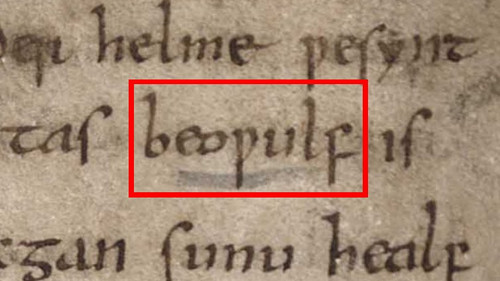 der helme ƿesynt
tas beoƿulf is
cgan sunu healf